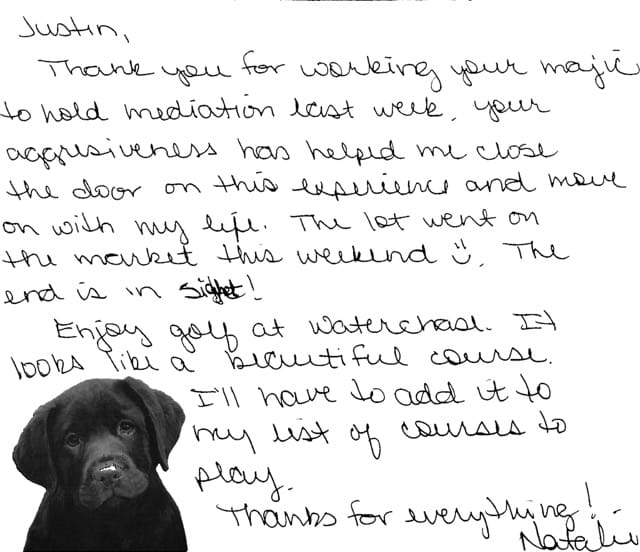 Justin,
Thank you for working your majic
to hold mediation last week, your
aggresiveness has helped me close
the door on this experience and move
on with my life. The lot went on
the market this weekend :). The
end is in sight!
Enjoy golf at Waterchase. It
looks like a beautiful course.
I'll have to add it to
my list of courses to
play.
Thanks for everything!
Natalie